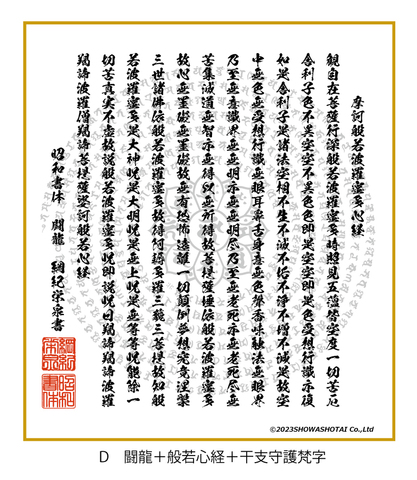 摩訶般若波羅蜜多心経
観自在菩薩行深般若波羅蜜多時照見五蘊皆空度一切苦厄
舎利子色不異空空不異色色即是空空即是色受想行識亦復
如是舎利子是諸法空相不生不滅不垢不浄不増不減是故空
中無色無受想行識無眼耳鼻舌身意無色声香味触法無眼界
乃至無意識界無無明亦無無明尽乃至無老死亦無老死尽無
苦集滅道無智亦無得以無所得故菩提薩埵依般若波羅蜜多
故心無罣礙無罣礙故無有恐怖遠離一切顛倒夢想究竟涅槃
三世諸佛依般若波羅蜜多故得阿耨多羅三藐三菩提故知般
若波羅蜜多是大神呪是大明呪是無上呪是無等等呪能除一
切苦真実不虚故説般若波羅蜜多呪即説呪曰羯諦羯諦波羅
羯諦波羅僧羯諦菩提薩婆訶般若心経
昭和書体 闘龍 綱紀栄泉書
昭和書体
©2023SHOWASHOTAI Co.,Ltd
D 闘龍＋般若心経＋干支守護梵字